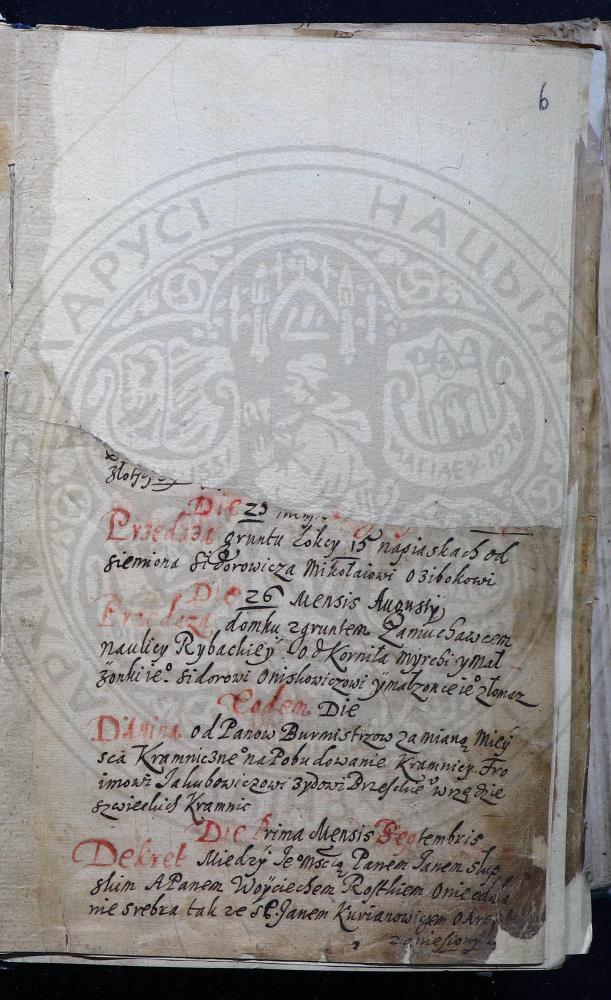 6
БЕЛАРУСІ НАЦЫЯ
Die 23
Przedaża gruntu Łokcy 15 napiaskach od
siemiona sidorowicza Mikołaiowi Ozibokowi
Die 26 Mensis Augustÿ
Przedaza domku zgruntem Zamuchawcem
naulicy Rybackieÿ od Korniła Myrchi ymał
żonki ie° sidorowi Oniskowiczowi ÿmałzonce ie° złomaz
Eodem Die
Danina od Panow Burmistrzow zamianą Mieÿ
sca Kramniczne° naPobudowanie Kramnicy Fro
imowi Jakubowiczowi Zydowi Brzeskie° wrzędzie
szwieckich Kramnic
Die Prima Mensis Septembris
Dekret Miedzÿ Je°Mscią Panem Janem
skim A Panem Woÿciechem Rostkiem
nie srebra tak ze Janem Kurianowiczem